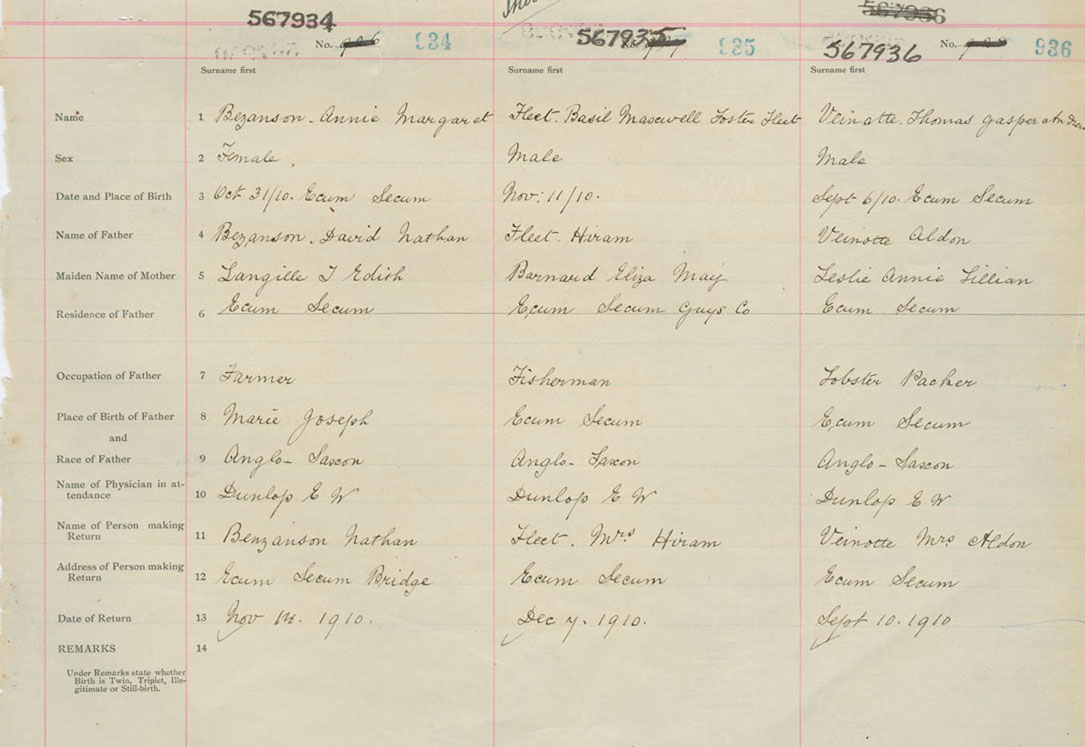 567934 567935 567936
No. 934 935 No. 936
Surname first Surname first Surname first
Name 1 Bezanson. Annie Margaret Fleet. Basil Maxwell Foster Fleet Veinotte. Thomas Gasper
Sex 2 Female. Male Male
Date and Place of Birth 3 Oct 31/10. Ecum Secum Nov: 11/10. Sept 6/10. Ecum Secum
Name of Father 4 Bezanson. David Nathan Fleet. Hiram Veinotte Aldon
Maiden Name of Mother 5 Langille I Edith Barnard Eliza May Leslie Annie Lillian
Residence of Father 6 Ecum Secum Ecum Secum Guys Co Ecum Secum
Occupation of Father 7 Farmer Fisherman Lobster Packer
Place of Birth of Father 8 Marie Joseph Ecum Secum Ecum Secum
and
Race of Father 9 Anglo-Saxon Anglo-Saxon Anglo-Saxon
Name of Physician in at-
tendance 10 Dunlop E W Dunlop E W Dunlop E W
Name of Person making
Return 11 Benzanson Nathan Fleet. Mrs Hiram Veinotte Mrs Aldon
Address of Person making
Return 12 Ecum Secum Bridge Ecum Secum Ecum Secum
Date of Return 13 Nov 14. 1910. Dec 7. 1910. Sept 10. 1910
REMARKS 14
Under Remarks state whether
Birth is Twin, Triplet, Ille-
gitimate or Still-birth.